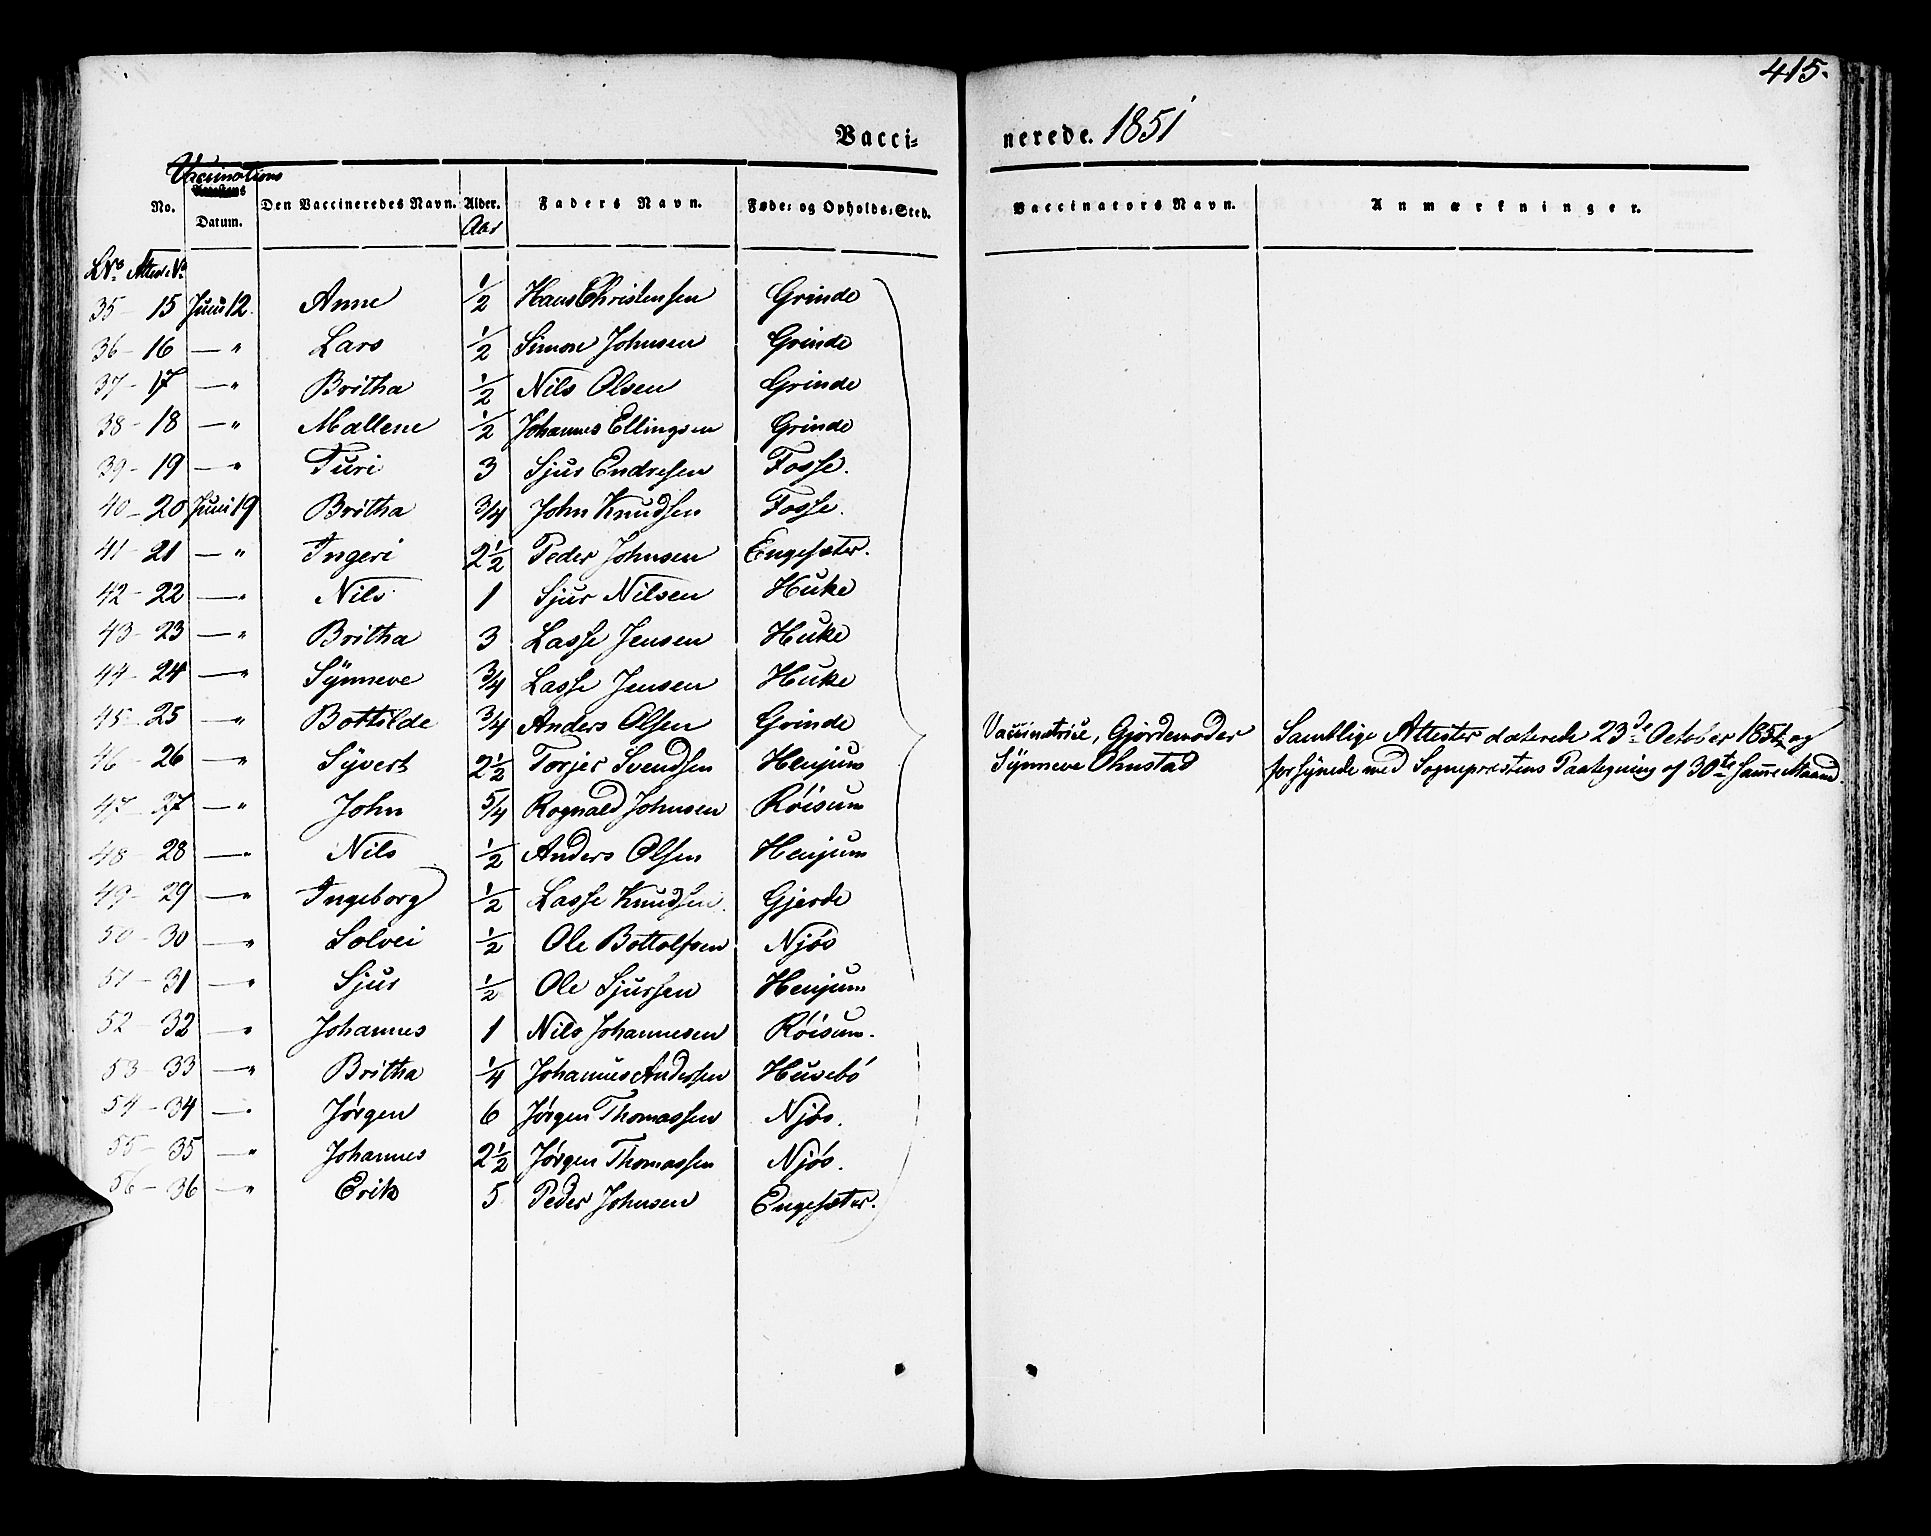 415.
Vacci= nerede. 1851
Vaccinations
No. Datum. Den Vaccineredes Navn. Alder. Faders Navn. Føde= og Opholds=Sted. Vaccinators Navn. Anmærkninger.
Aar
LNo Attest No
35 - 15 Juni 12. Anne 1/2 Hans Christensen Grinde
36 - 16 — " Lars 1/2 Simon Johnsen Grinde
37 - 17 — " Britha 1/2 Nils Olsen Grinde
38 - 18 — " Mallene 1/2 Johannes Ellingsen Grinde
39 - 19 — " Turi 3 Sjur Endresen Fosse.
40 - 20 Juni 19 Britha 3/4 John Knudsen Fosse.
41 - 21 — " Ingeri 2 1/2 Peder Johnsen Engesæter.
42 - 22 — " Nils 1 Sjur Nilsen Huke
43 - 23 — " Britha 3 Lasse Jensen Huke
44 - 24 — " Synneve 3/4 Lasse Jensen Huke
45 - 25 — " Bottilde 3/4 Anders Olsen Grinde Vaccinatrice, Gjordemoder Samtlige Attester daterede 23de October 1851 og
46 - 26 — " Syvert 2 1/2 Torjer Svendsen Henjum Synneve Ohnstad forsynede med Sognepræstens Paategning af 30te samme Maaned.
47 - 27 — " John 5/4 Rognald Johnsen Röisum
48 - 28 — " Nils 1/2 Anders Olsen Henjum
49 - 29 — " Ingeborg 1/2 Lasse Knudsen. Gjerde
50 - 30 — " Solvei 1/2 Ole Bottolfsen Njós
51 - 31 — " Sjur 1/2 Ole Sjursen Henjum
52 - 32 — " Johannes 1 Nils Johannesen Röisum.
53 - 33 — " Britha 1/4 Johannes Andersen Husebó
54 - 34 — " Jórgen 6 Jórgen Thomassen Njós.
55 - 35 — " Johannes 2 1/2 Jórgen Thomassen Njós.
56 - 36 — " Erik 5 Peder Johnsen Engesæter.